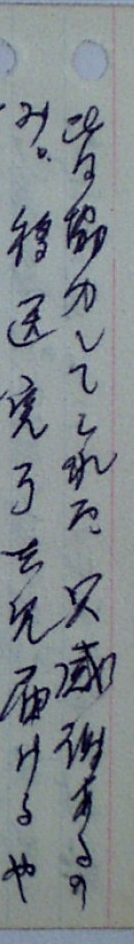 皆協力してくれた 只感謝あるの
み。移送完了を見届けるや